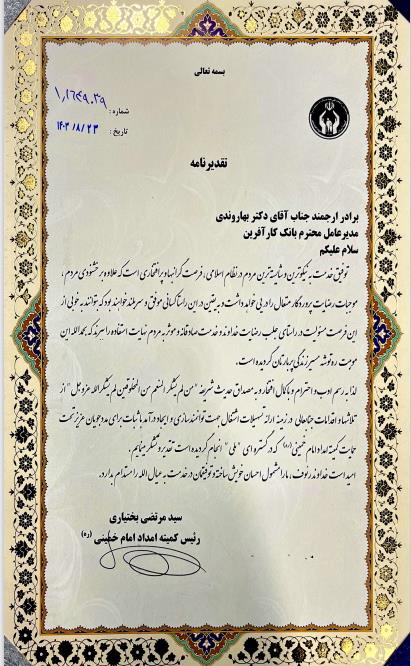 بسمه تعالی
شماره :
تاریخ : ۱۴۰۳/۸/۲۳
تقدیرنامه
برادر ارجمند جناب آقای دکتر بهاروندی
مدیرعامل محترم بانک کارآفرین
سلام علیکم
توفیق خدمت به نیکوترین و شایسته‌ترین مردم در نظام اسلامی ، فرصت گرانبها و پرافتخاری است که علاوه بر خشنودی مردم ،
موجبات رضایت پروردگار متعال را در پی خواهد داشت و به یقین در این راستا کسانی موفق و سربلند خواهند بود که توانسته به خوبی از
این فرصت مسئولیت در راستای جلب رضایت خداوند و خدمت صادقانه و موثر به مردم نهایت استفاده را ببرند که بحمدالله این
موهبت ره توشه مسیر زندگی پربارتان گردیده است.
لذا به رسم ادب و احترام و با کمال افتخار و به مصداق حدیث شریفه "من لم یشکر المنعم من المخلوقین لم یشکر الله عزوجل" از
تلاشها و اقدامات جنابعالی در زمینه ارائه تسهیلات اشتغال جهت توانمندسازی و ایجاد درآمد با ثبات برای مددجویان عزیز تحت
حمایت کمیته امداد امام خمینی (ره) که در گستره ای "ملی" انجام گردیده است تقدیر و تشکر مینمایم .
امید است خداوند رئوف ، ما را مشمول احسان خویش ساخته و توفیقتان در خدمت به عیال الله را مستدام بدارد.
سید مرتضی بختیاری
رئیس کمیته امداد امام خمینی (ره)